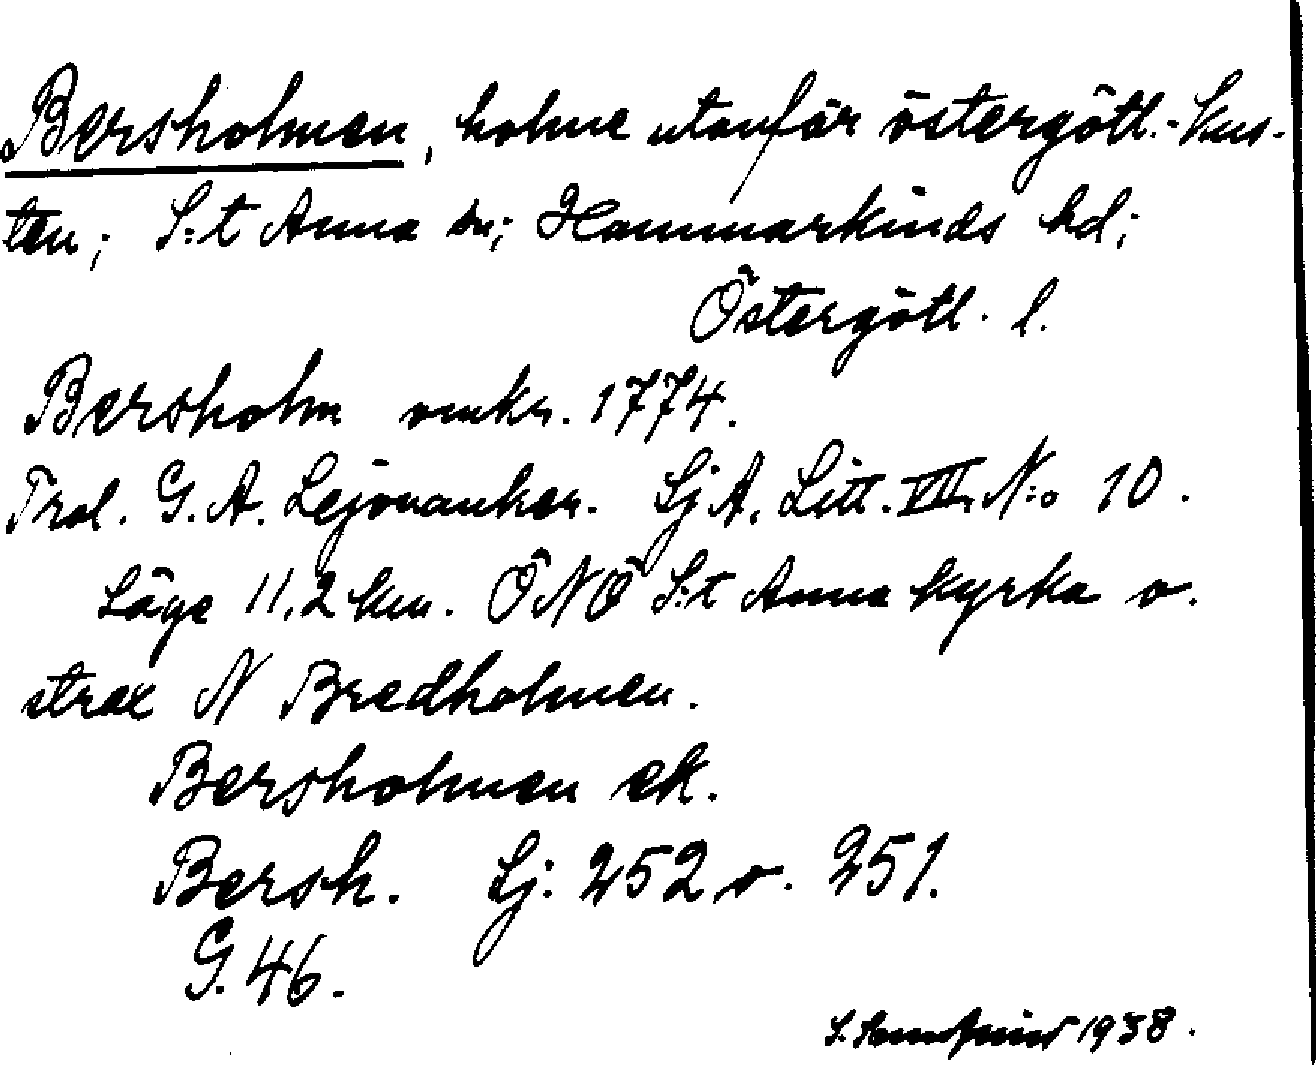 Bersholmen, holme utanför östergötl.-kus-
ten; S:t Anna sn; Hammarkinds hd;
Östergötl. l.
Bersholm omkr. 1774.
Trol. G. A. Lejonanker. Sj A. Litt. VII. N:o 10.
Läge 11,2 km. ÖNÖ S:t Anna kyrka o.
strax N Bredholmen.
Bersholmen ek.
Bersh. Sj: 252 o. 251.
G. 46.
1938.